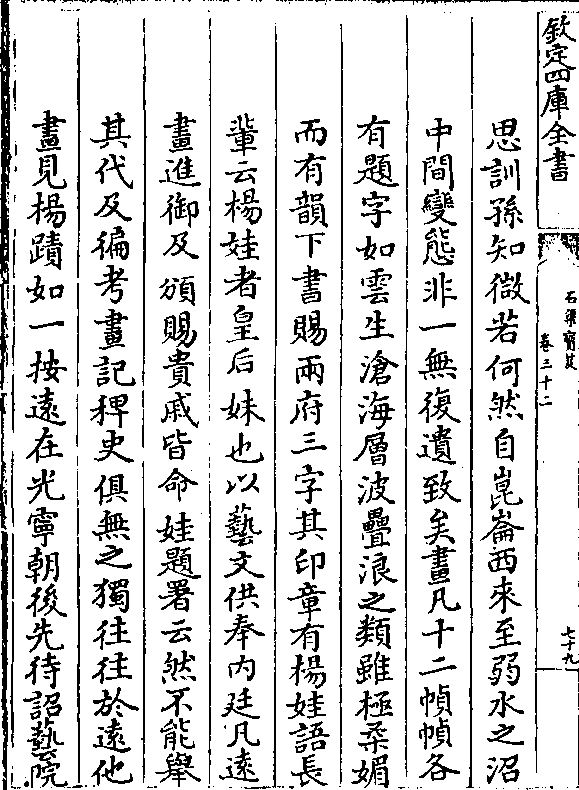 欽定四庫全書
石渠寳笈
卷三十二
七十九
思訓孫知微若何然自崑崙西來至弱水之沼
中間變態非一無復遺致矣畫凡十二幀幀各
有題字如雲生滄海層波疊浪之類雖極柔媚
而有韻下書賜兩府三字其印章有楊娃語長
輩云楊娃者皇后妹也以藝文供奉内廷凡遠
畫進御及頒賜貴戚皆命娃題署云然不能舉
其代及徧考畫記稗史俱無之獨往往於逺他
畫見楊蹟如一按遠在光寧朝後先待詔藝院